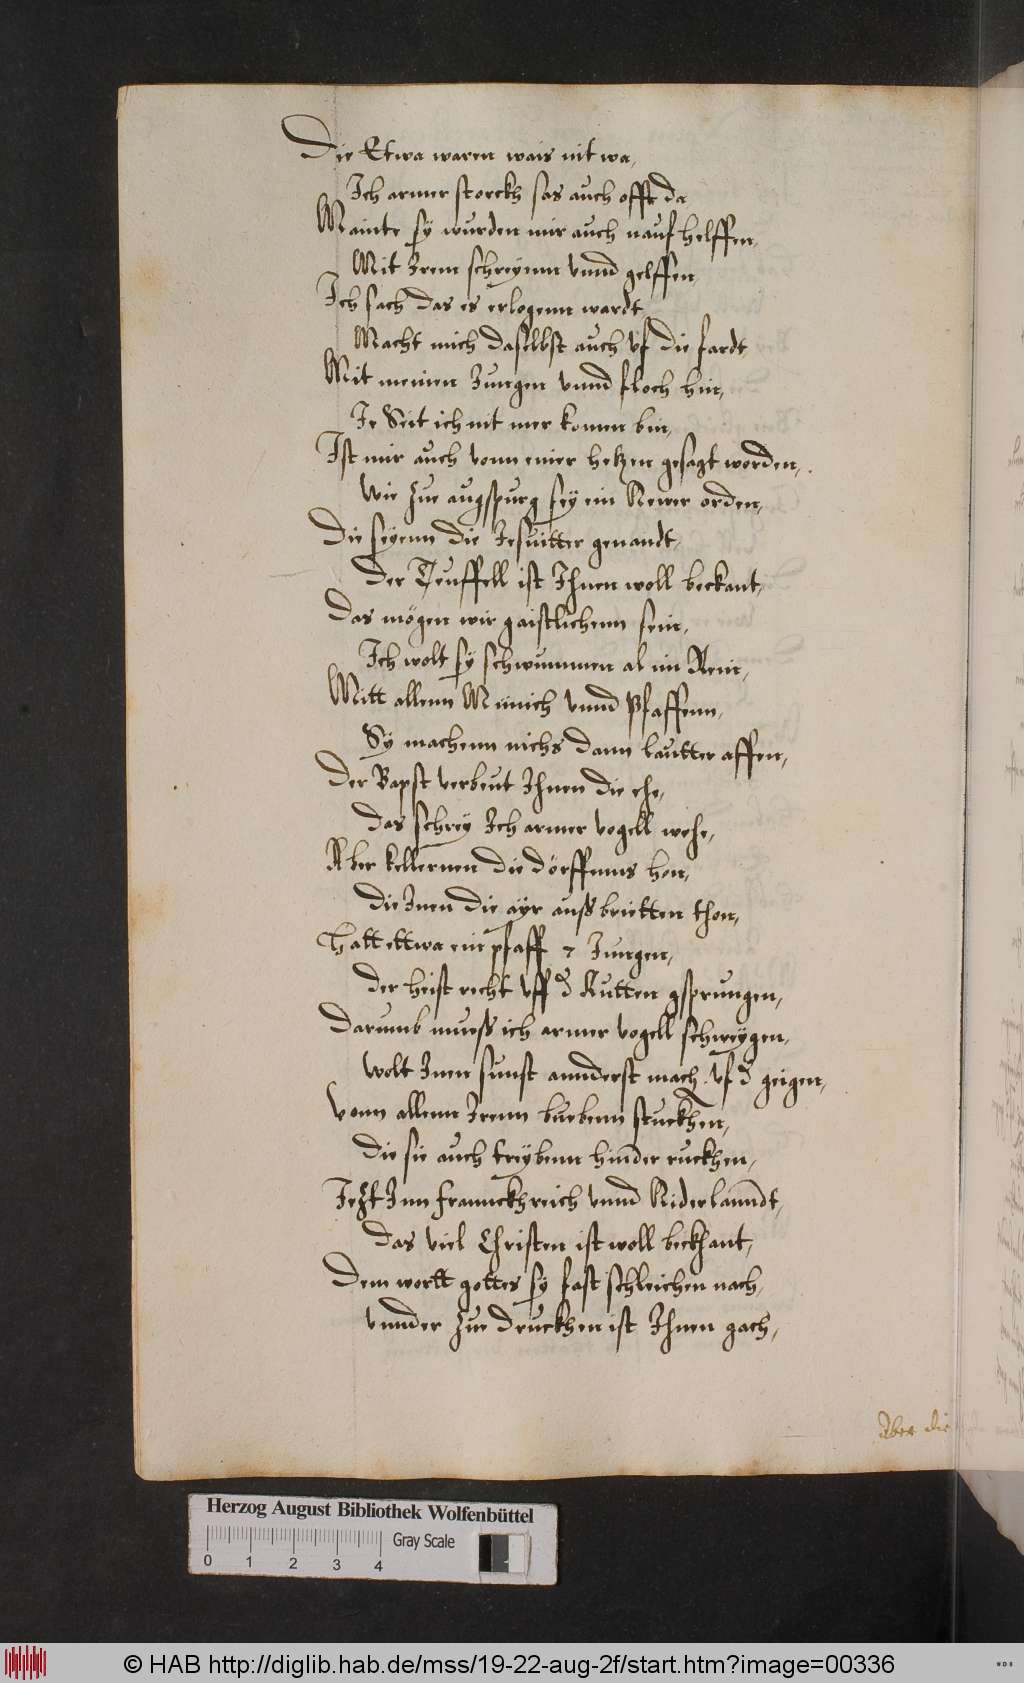 Die Etwa waren wais nit wa,
Ich armer storckh sas auch offt da
Mainte sy wurden mir auch nauf helffen,
Mit Irem schreyenn vnnd gelffen
Ich sach das es erlogenn wardt
Macht mich daselbst auch vf die fardt
Mit meinen Jungen vnnd floch hin,
Je Seit ich nit mer komen bin,
Ist mir auch vonn einer hetzen gesagt worden,
Wie zue augspurg sey ein Newer orden,
Die seyenn die Jesuitter genandt,
Der Teuffell ist Ihnen woll beckant,
Das mögen wir gaistlichenn sein,
Ich wolt sy schwummen al im Rein,
Mitt allenn Münich vnnd Pfaffenn,
Sy machenn nichs dann lautter affen,
Der Bapst verbeut Ihnen die ehe,
Das schrey Ich armer vogell wehe,
Aber kellernen die dörffenns hon,
Die Inen die ayr auss brietten thon,
Hatt ettwa ein pfaff 7 Jungen,
Der heist recht vff d Kutten gsprungen,
Darumb muess ich armer vogell schweygen,
Wolt Inen sunst annderst mach vf d geigen,
Vonn allenn Irenn buebenn stuckhen,
Die sie auch treybenn hinder ruckhen,
Jezt Inn franckhreich vnnd Niderlanndt,
Das viel Christen ist woll beckhant,
Dem wortt gottes sy fast schleichen nach,
Vnnder zue druckhen ist Ihnen gach,
Aber die
Herzog August Bibliothek Wolfenbüttel
Gray Scale
0 1 2 3 4
© HAB http://diglib.hab.de/mss/19-22-aug-2f/start.htm?image=00336